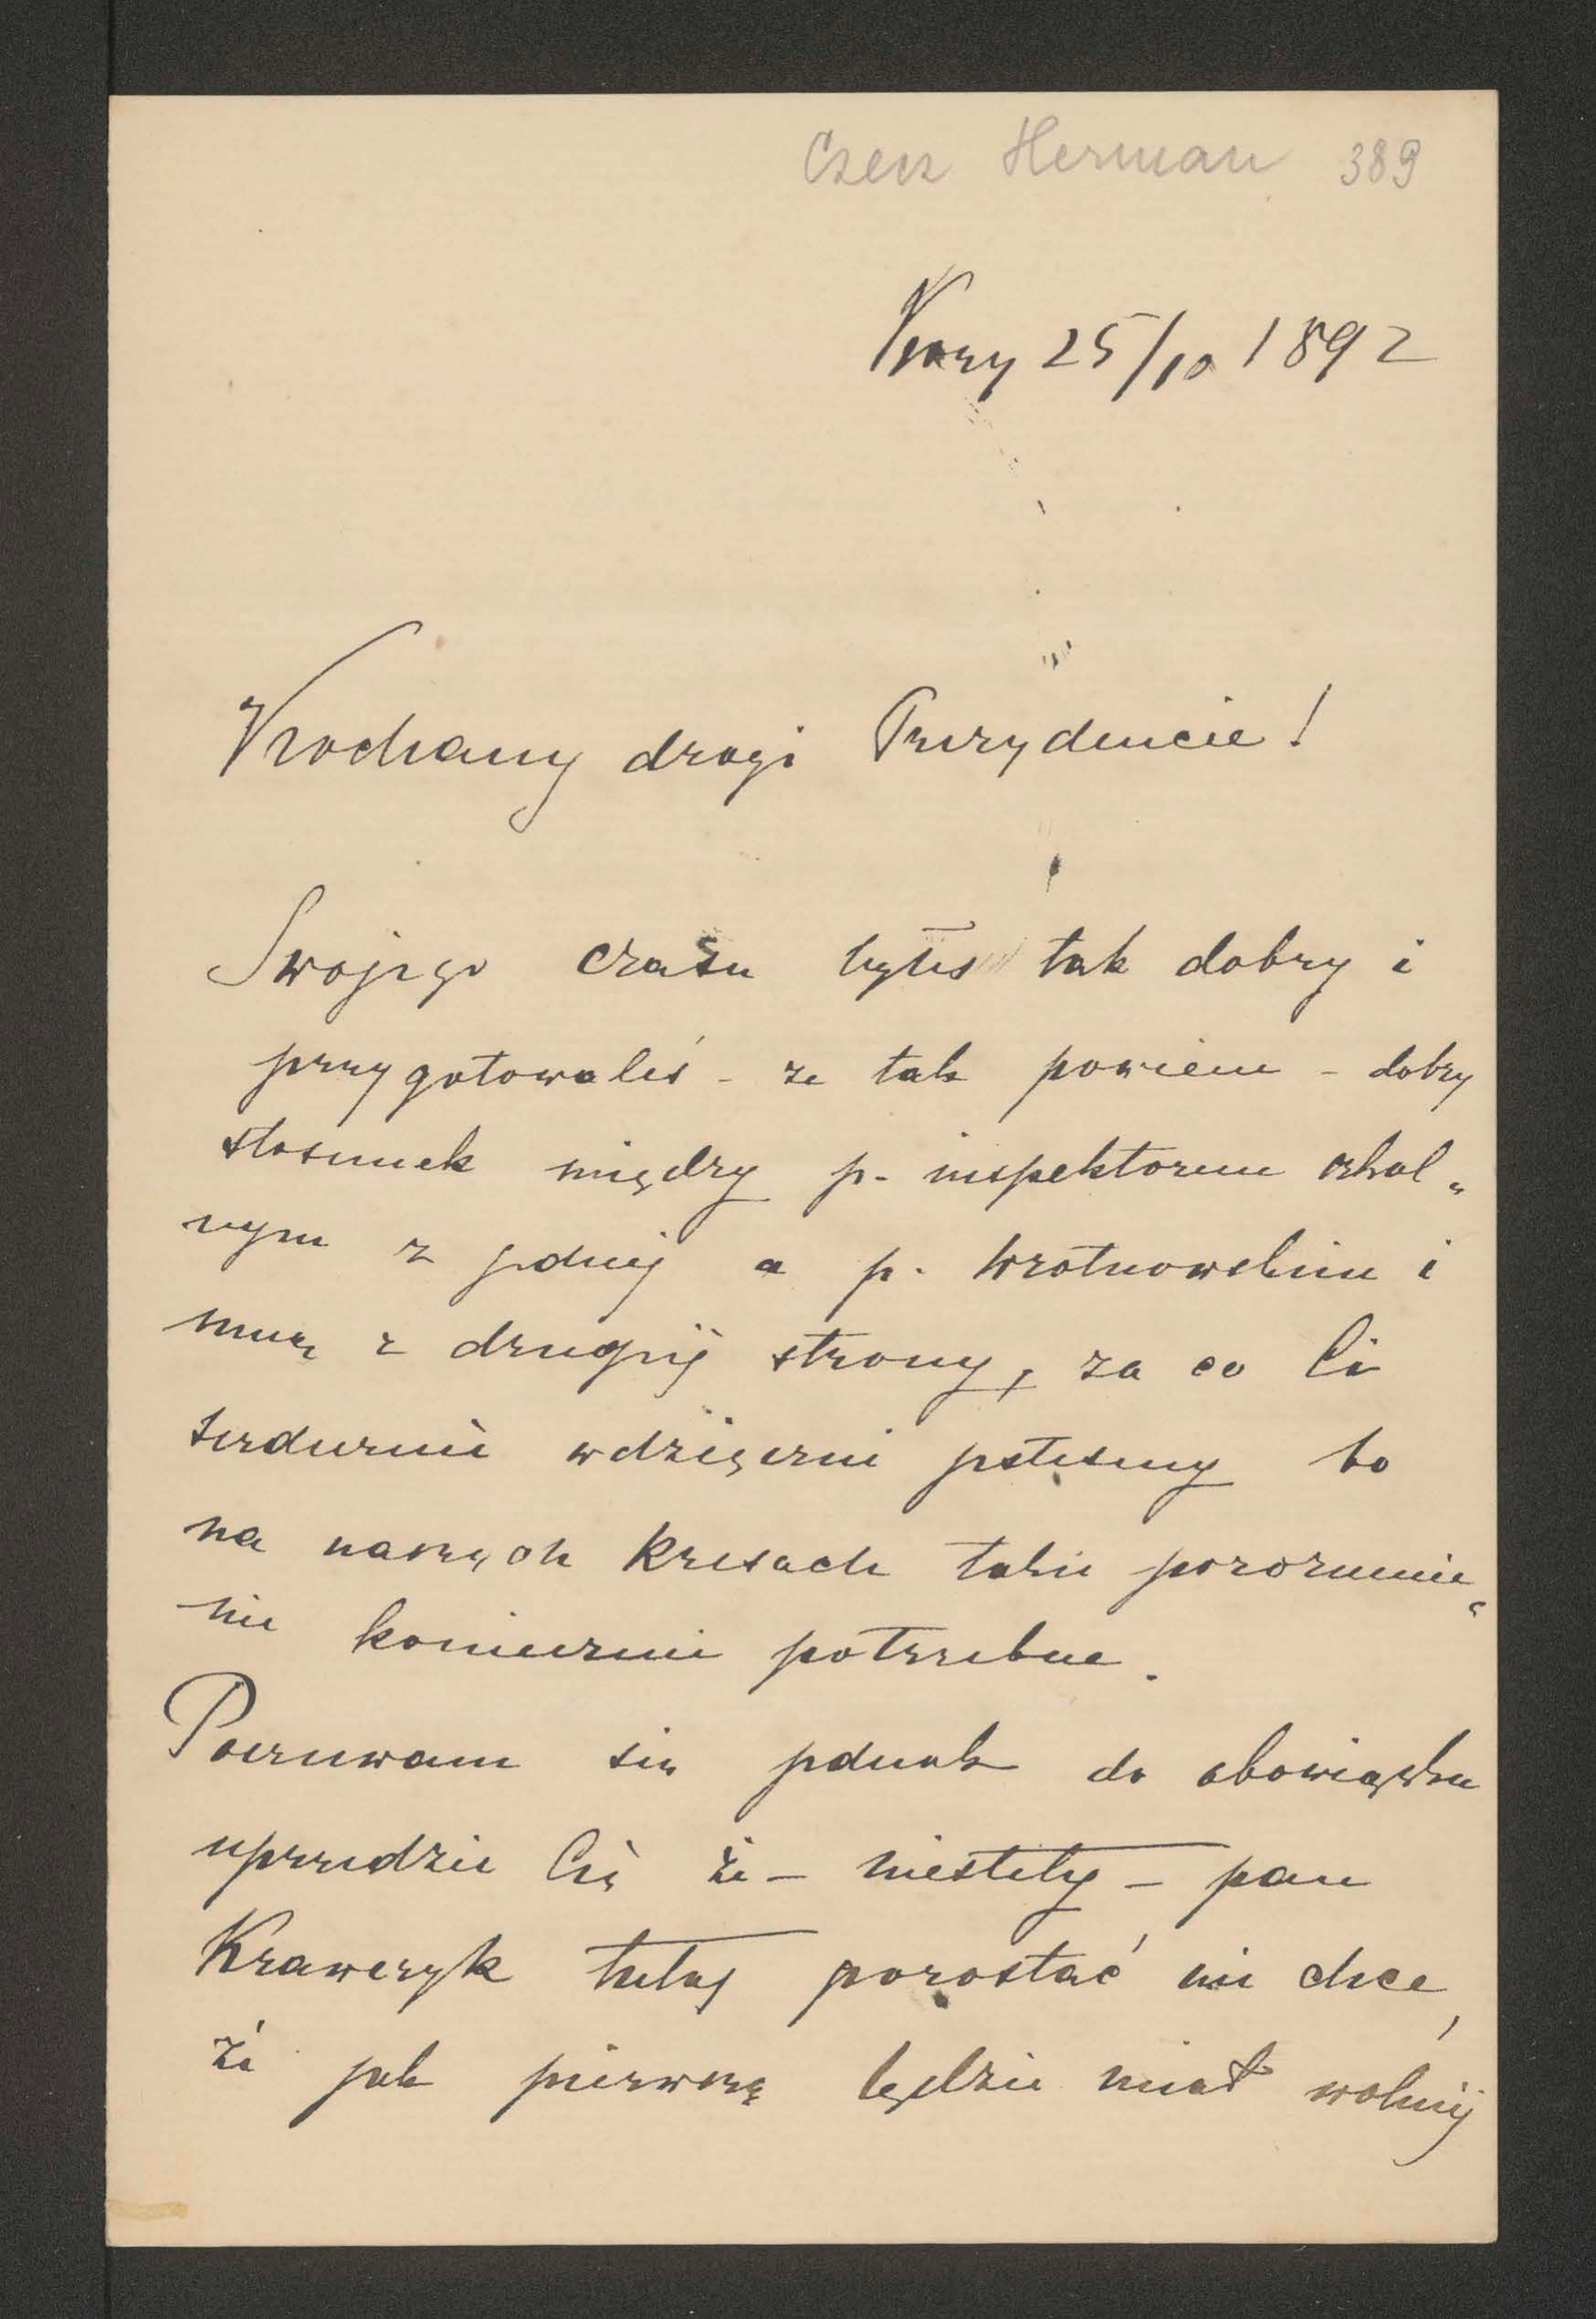 Czecz Herman 389
Kozy 25/10 1892
Kochany drogi Prezydencie!
Swojego czasu byłeś tak dobry i
przygotowałeś - że tak powiem - dobry
stosunek między p. inspektorem szkol„
nym z jednej a p. Wrotnowskim i
mną z drugiej strony, za co Ci
serdecznie wdzięczni jesteśmy bo
na naszych kresach takie porozumie„
nie koniecznie potrzebne.
Poczuwam się jednak do obowiązku
uprzedzić Cię że - niestety - pan
Krawczyk tutaj pozostać nie chce,
że jak pierwszą będzie miał wolniej